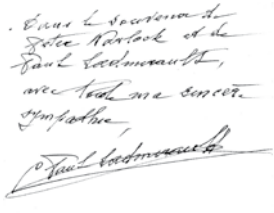 Dans le souvenir de
Peter Warlock et de
Paul Ladmirault,
avec toute ma sincère
sympathie,
Paul Ladmirault